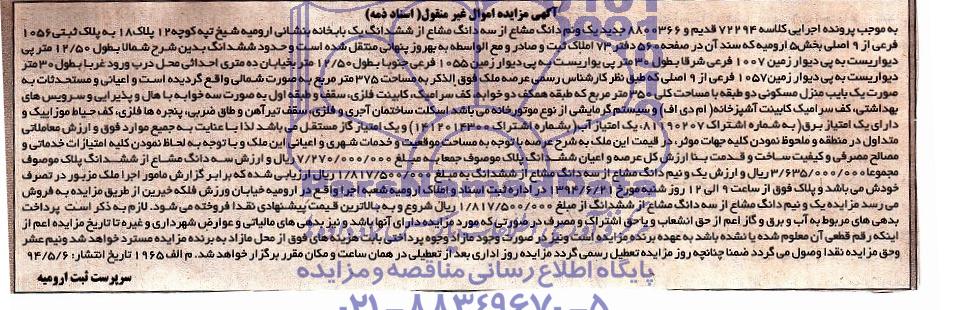 آگهی مزایده اموال غیر منقول( اسناد ذمه)
به موجب پرونده اجرایی کلاسه ۷۲۲۹۴ قدیم و ۸۸۰۰۳۶۶ جدید یک ونیم دانگ مشاع از سه دانگ مشاع از ششدانگ یک بابخانه بنشانی ارومیه شیخ تپه کوچه۱۲ پلاک۱۸ به پلاک ثبتی۱۰۵۶
فرعی از ۹ اصلی بخش۵ ارومیه که سند آن در صفحه۵۶۰ دفتر۷۴ املاک ثبت و صادر و مع الواسطه به بهروز پنهانی منتقل شده است و حدود ششدانگ بدین شرح شمالا بطول ۱۲/۵۰ متر پی
دیواریست به پی دیوار زمین ۱۰۰۷ فرعی شرقا بطول ۳۰متر پی یواریست به پی دیوار زمین ۱۰۵۵ فرعی جنوبا بطول ۱۲/۵۰ متر بخیابان ده متری احداثی محل درب ورود غربا بطول ۳۰متر
دیواریست به پی دیوار زمین۱۰۵۷ فرعی از ۹ اصلی که طبق نظر کارشناس رسمی عرصه ملک فوق الذکر به مساحت ۳۷۵ متر مربع به صورت شمالی واقع گردیده است و اعیانی و مستحدثات به
صورت یک بایب منزل مسکونی دو طبقه با مساحت کلی ۳۵۰ متر مربع که طبقه همکف دو خوابه، کف سرامیک کابینت فلزی، سقف و طبقه اول به صورت سه خوابه با هال و پذیرایی و سرویس های
بهداشتی، کف سرامیک کابینت آشپزخانه( ام دی اف) و سیستم گرمایشی از نوع موتورخانه می باشد اسکلت ساختمان آجری و فلزی، سقف تیرآهن و طاق ضربی، پنجره ها فلزی، کف حیاط موزاییک و
دارای یک امتیاز برق( به شماره اشتراک ۸۱۱۹۰۲۰۷، یک امتیاز آب( بشماره اشتراک ۱۴۱۲۰۱۴۳۰۰) و یک امتیاز گاز مستقل می باشد لذا با عنایت به جمیع موارد فوق و ارزش معاملاتی
متداول در منطقه و ملحوظ نمودن کلیه جهات موثر، در قیمت این ملک به شرح عرصه با توجه به مساحت موقعیت و خدمات شهری و اعیانی این ملک و با توجه به لحاظ نمودن کلیه امتیازات خدماتی و
مصالح مصرفی و کیفیت ساخت و قدمت بنا ارزش کل عرصه و اعیان ششدانگ پلاک موصوف جمعا به مبلغ ۷/۲۷۰/۰۰۰/۰۰۰ ریال و ارزش سه دانگ مشاع از ششدانگ پلاک موصوف
مجموعا ۳/۶۳۵/۰۰۰/۰۰۰ ریال و ارزش یک ونیم دانگ مشاع از سه دانگ مشاع از ششدانگ به مبلغ ۱/۸۱۷/۵۰۰/۰۰۰ ریال ارزیابی شده که برابر گزارش مامور اجرا ملک مزبور در تصرف
خودش می باشد و پلاک فوق از ساعت ۹ الی ۱۲ روز شنبه مورخ ۱۳۹۴/۶/۲۱ در اداره ثبت اسناد و املاک ارومیه شعبه اجرا واقع در ارومیه خیابان ورزش فلکه خیرین از طریق مزایده به فروش
می رسد مزایده یک و نیم دانگ مشاع از سه دانگ مشاع از ششدانگ از مبلغ ۱/۸۱۷/۵۰۰/۰۰۰ ریال شروع و به بالاترین قیمت پیشنهادی نقدا فروخته می شود. لازم به ذکر است پرداخت
بدهی های مربوط به آب و برق و گاز اعم از حق انشعاب و یا حق اشتراک و مصرف در صورتی که مورد مزایده دارای آنها باشد و نیز بدهی های مالیاتی و عوارض شهرداری و غیره تا تاریخ مزایده اعم از
اینکه رقم قطعی آن معلوم شده یا نشده باشد به عهده برنده مزایده است و نیز در صورت وجود مازاد وجوه پرداختی بابت هزینه های فوق از محل مازاد به برنده مزایده مسترد خواهد شد ونیم عشر
وحق مزایده نقدا وصول می گردد ضمنا چنانچه روز مزایده تعطیل رسمی گردد مزایده روز اداری بعد از تعطیلی در همان ساعت و مکان مقرر برگزار خواهد شد. م الف ۱۹۶۵ تاریخ انتشار: ۹۴/۵/۶
سرپرست ثبت ارومیه
پایگاه اطلاع رسانی مناقصه و مزایده
۰۲۱-۸۸۳۴۹۶۷۰-۵